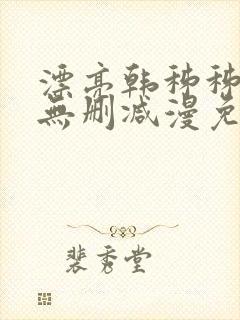 漂亮韩秭秭
無删减漫免
裴秀堂